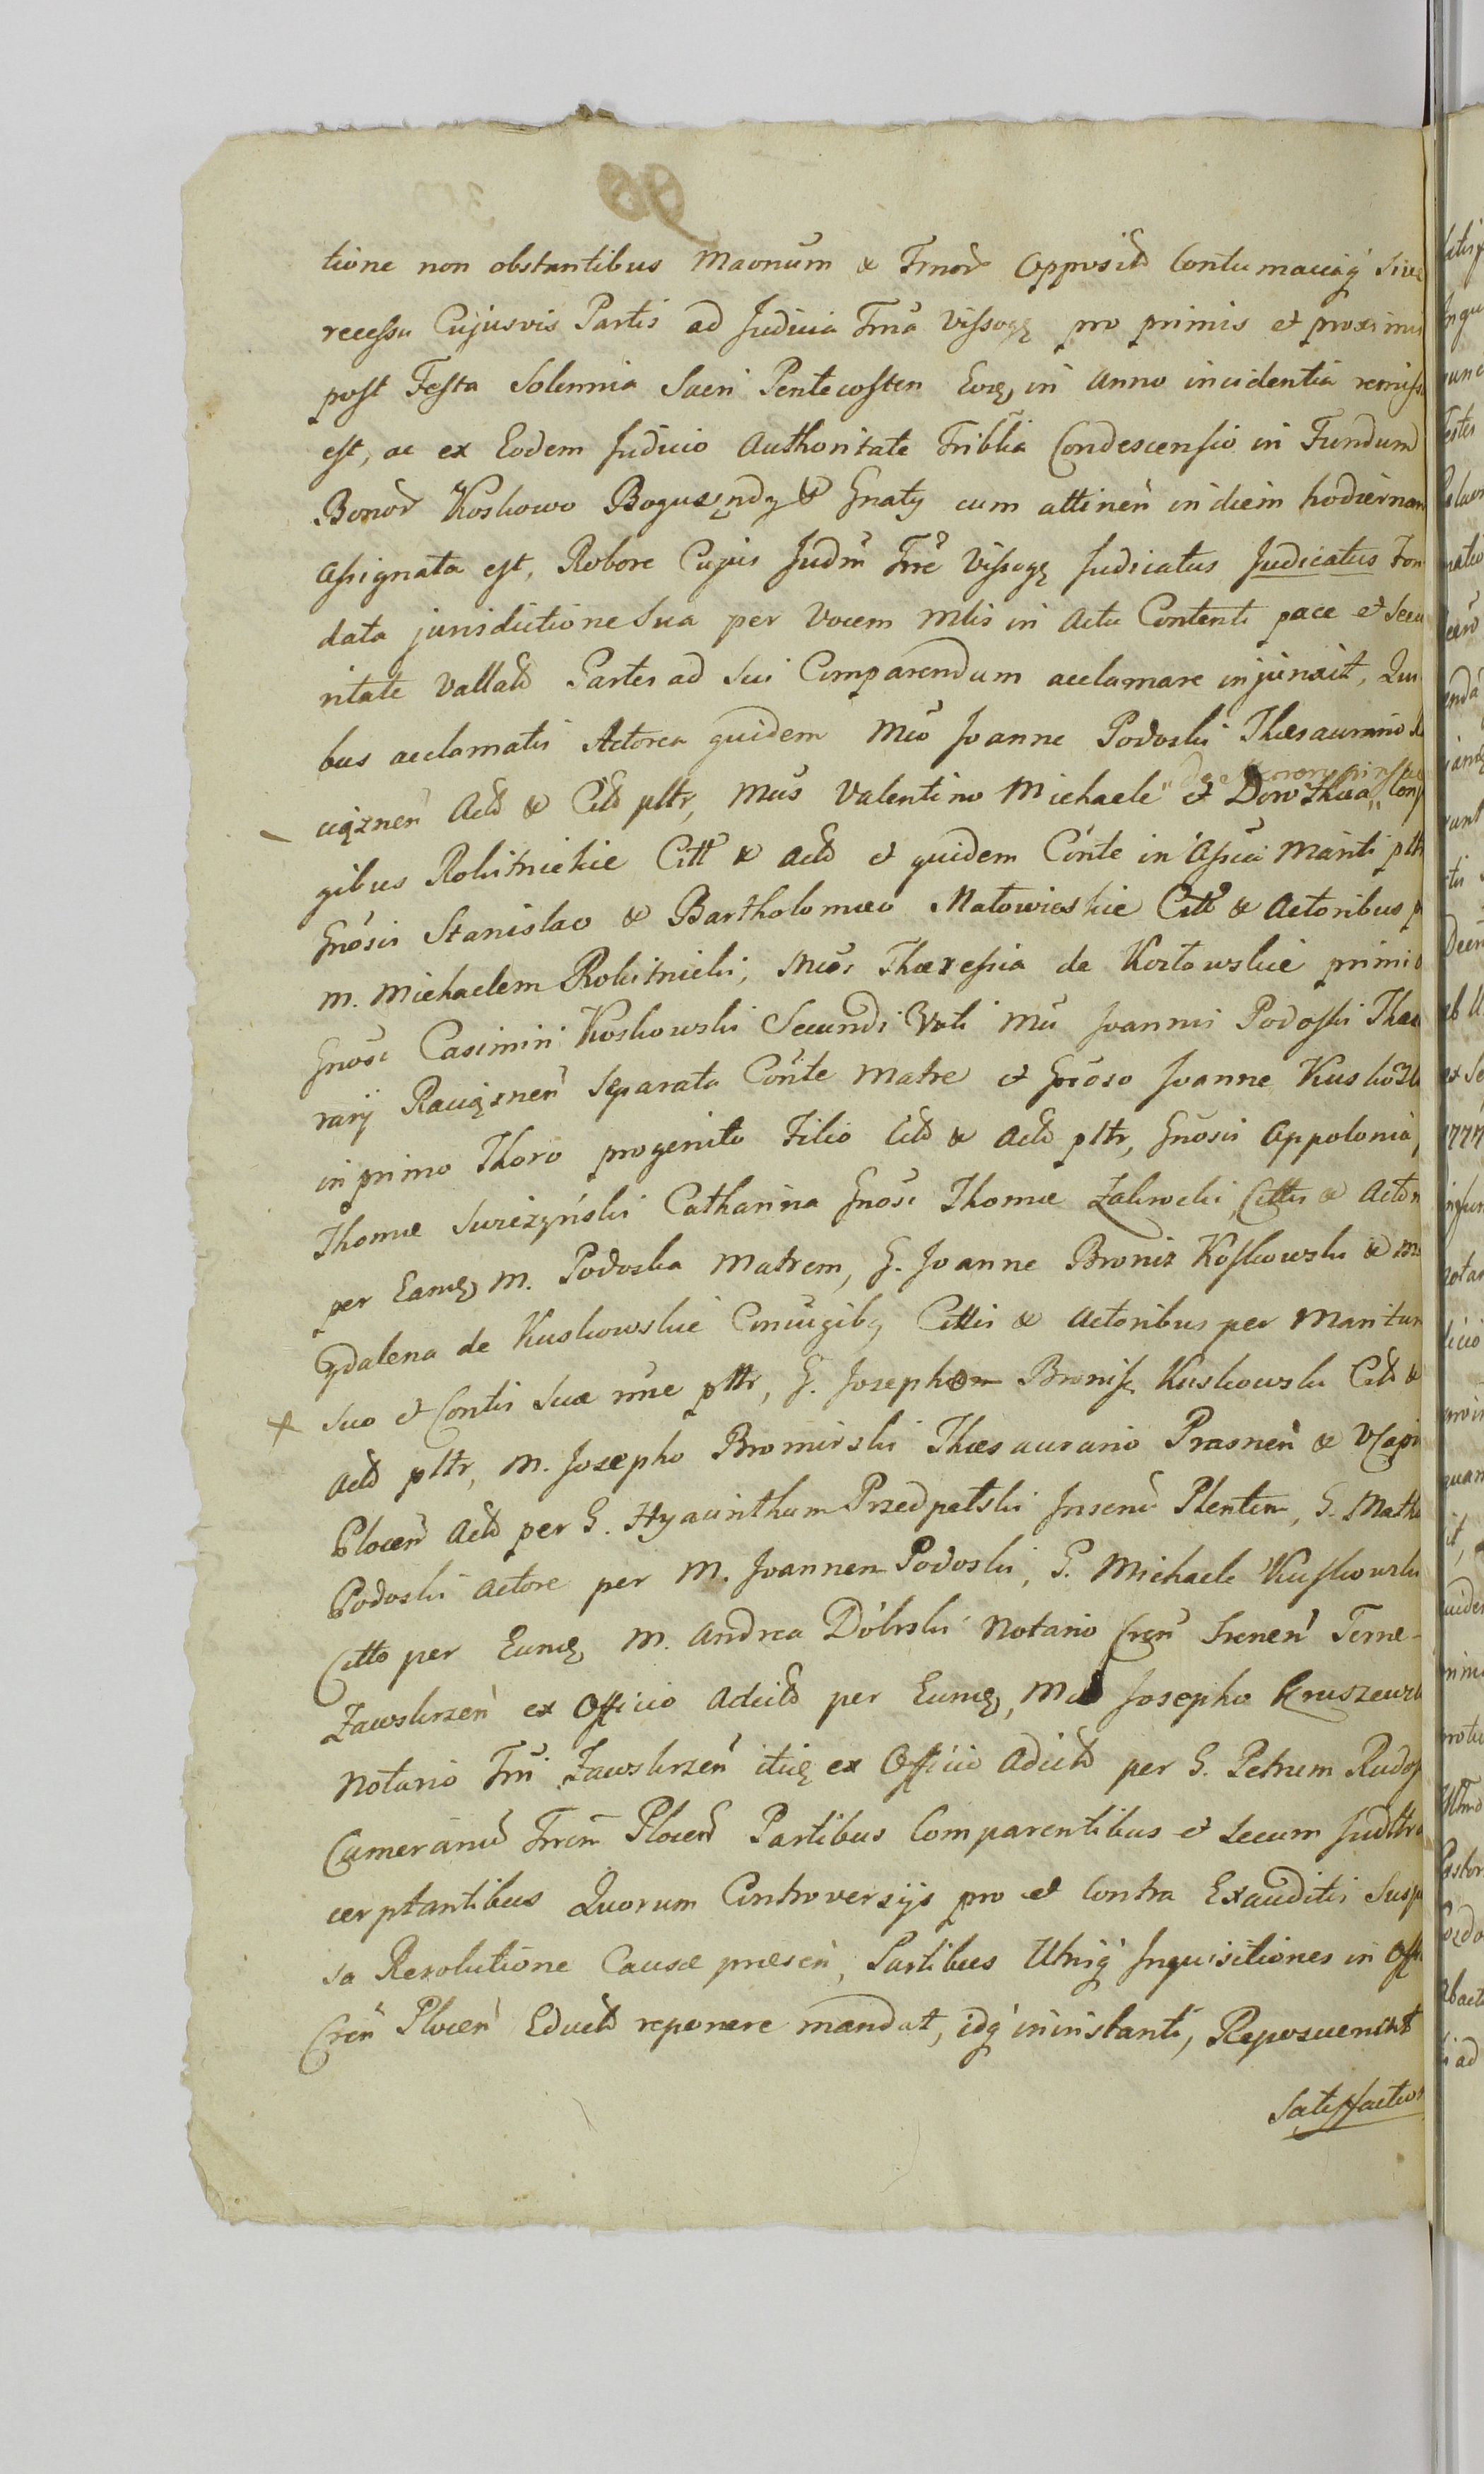 tione non obstantibus Maonum & Trnor Opposit Contumaciaq sive
recessu Cujusvis Partis ad Judicia Trna Vissogę pro primis et proximis
post Festa Solennia Sacri Pentecosten Eorę, in Anno incidentia remissa
est, ac ex Eodem Judicio Authoritate Triblia Condescensio in Fundum
Bonor Koskowo Bogusędy & Gnaty cum attinen in diem hodiernam
Assignata est, Robore Cujus Judm Trre Vissogę Judicatus Judicatus Fon
data jurisdictione Sua per Vocem Mlis in Actu Contenti pace et Secu
ritate Vallato Partes ad Sui Comparendum acclamare injunxit, Qui
bus acclamatis Actorea quidem Mco Joanne Podoski Thesaurario R
ciąznen Acto & Cito pltr, Mcis Valentino Michaele et Dorothea Conj
gibus Rokitnickie Citt & Acto et quidem Conte in Assa Mariti pltr
Gnosis Stanislao & Bartholomeo Małowieskie Citt & Actoribus p
M. Michaelem Rokitnicki, Mcis Theressia de Kozłowskie primi
Gnosi Casimiri Koskowski Secundi Voti Mci Joannis Podoski Thesau
rarij Raciąznen Separata Conte Matre et Gnoso Joanne Kuskowski
in primo Thoro progenito Filio Cito & Acto pltr, Gnosis Appolonia,
Thomæ Swieżyński Catharina Gnosi Thomæ Zalewski, Cittis & Actor
per Eamę, M. Podoska Matrem, G. Joanne Bronisz Koskowski & Ma
gdalena de Kuskowskie Conjugibq Cittis & Actoribus per Maritum
Suo et Contis Suæ nne pltr, G. Josepho Bronisz Kuskowski Cito &
Acto pltr, M. Josepho Bromirski Thesaurario Prasnen & VCapi
Plocen Acto per G. Hyacinthum Przedpełski Insenu Plentem, G. Mathi
Podoski Actore per M. Joannem Podoski, G. Michaele Kuskowski
Citto per Eumę M. Andrea Dobrski Notario Cren Srenen Terrę
Zawskrzen ex Officio Adcito per Eumę, Mco Josepho Kruszewski
Notario Trri Zawskrzen itię ex Officio Adcito per G. Petrum Rudo
Cameranu Trren Plocen Partibus Comparentibus et Secum Judltr
certantibus Quorum Controversijs pro et Contra Exauditis Susp
sa Resolutione Causæ præsen, Partibus Utriq Inquisitiones in Offi
Cren Plocen Educto reponere mandat, idq in instanti, Reposuerunt
Satisfaction